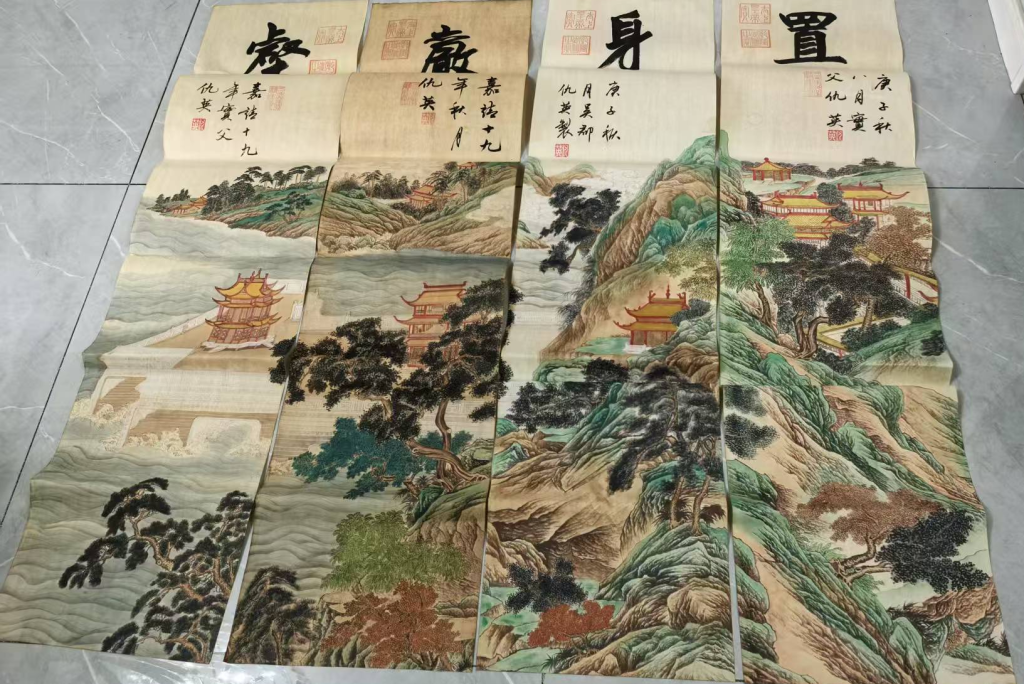 置
庚子秋
八月實
父仇英
身
庚子秋
月吳郡
仇英製
巖
嘉靖十九
年秋月
仇英
壑
嘉靖十九
年實父
仇英